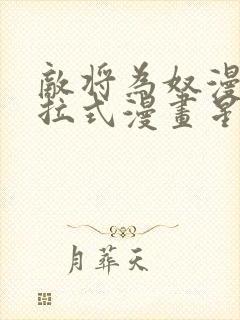 敵將為奴漫
拉式漫畫星
月葬天